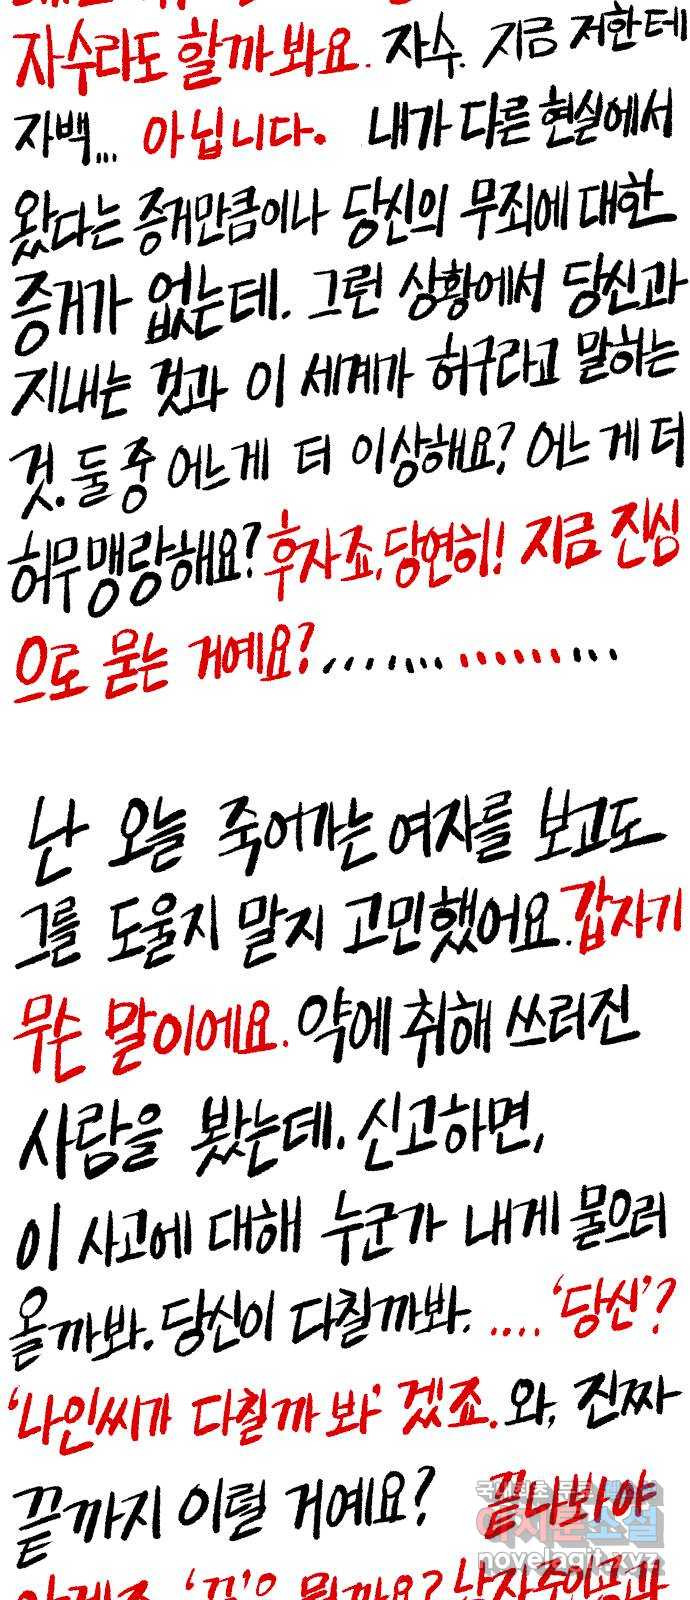 자수라도 할까 봐요. 자수. 지금 저한테
자백... 아닙니다. 내가 다른 현실에서
왔다는 증거만큼이나 당신의 무죄에 대한
증거가 없는데. 그런 상황에서 당신과
지내는 것과 이 세계가 허구라고 말하는
것. 둘 중 어느 게 더 이상해요? 어느 게 더
허무맹랑해요? 후자죠, 당연히! 지금 진심
으로 묻는 거예요?................
난 오늘 죽어가는 여자를 보고도
그를 도울지 말지 고민했어요. 갑자기
무슨 말이에요. 약에 취해 쓰러진
사람을 봤는데. 신고하면,
이 사고에 대해 누군가 내게 물으러
올까봐. 당신이 다칠까봐. .... '당신'?
'나인씨가 다칠까 봐' 겠죠. 와, 진짜
끝까지 이럴 거예요? 끝나봐야
novelagit.xyz